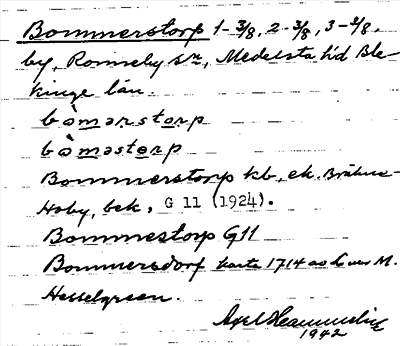 Bommerstorp 1-3/8, 2-3/8, 3-3/8,
by, Ronneby sn, Medelsta hd Ble-
kinge län.
bòmərstorp
bòməstorp
Bommerstorp kb, ek. Bräkne-
Hoby, bek, G 11 (1924).
Bommestorp G11
Bommersdorf karta 1714 as M.
Hesselgreen.
Axel
1942